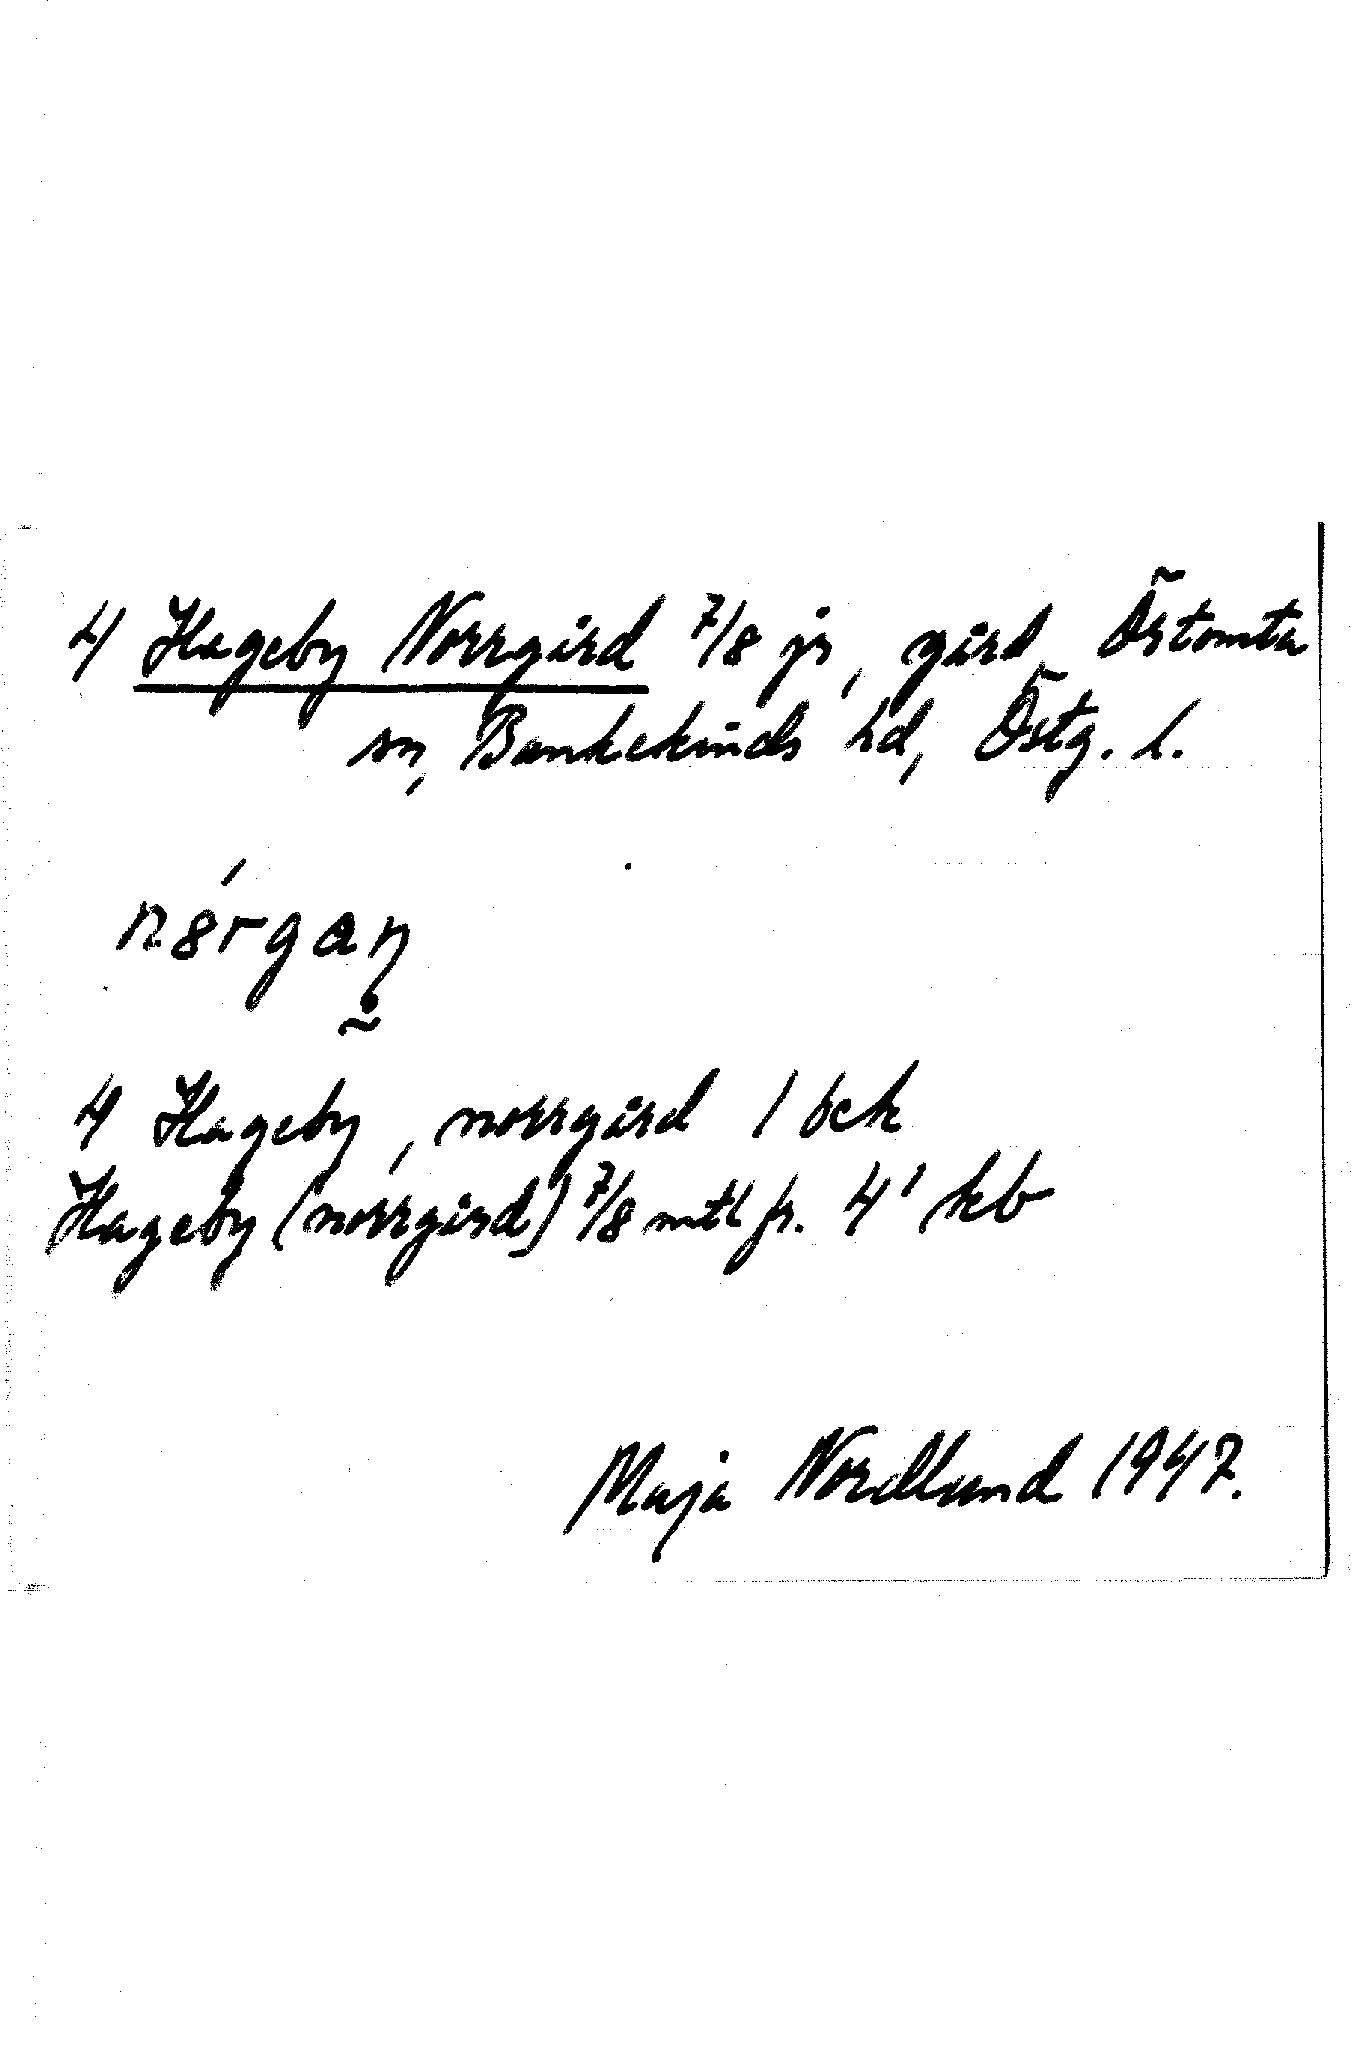 4 Hageby Norrgård 7/8 jr, gård Östomta
sn, Bankekinds hd, Östg. l.
nɵ́rgaņ
4 Hageby, norrgård 1 öck
Hageby (norrgård) 7/8 mtl fr. 4' kb
Maja Nordlund 1947.